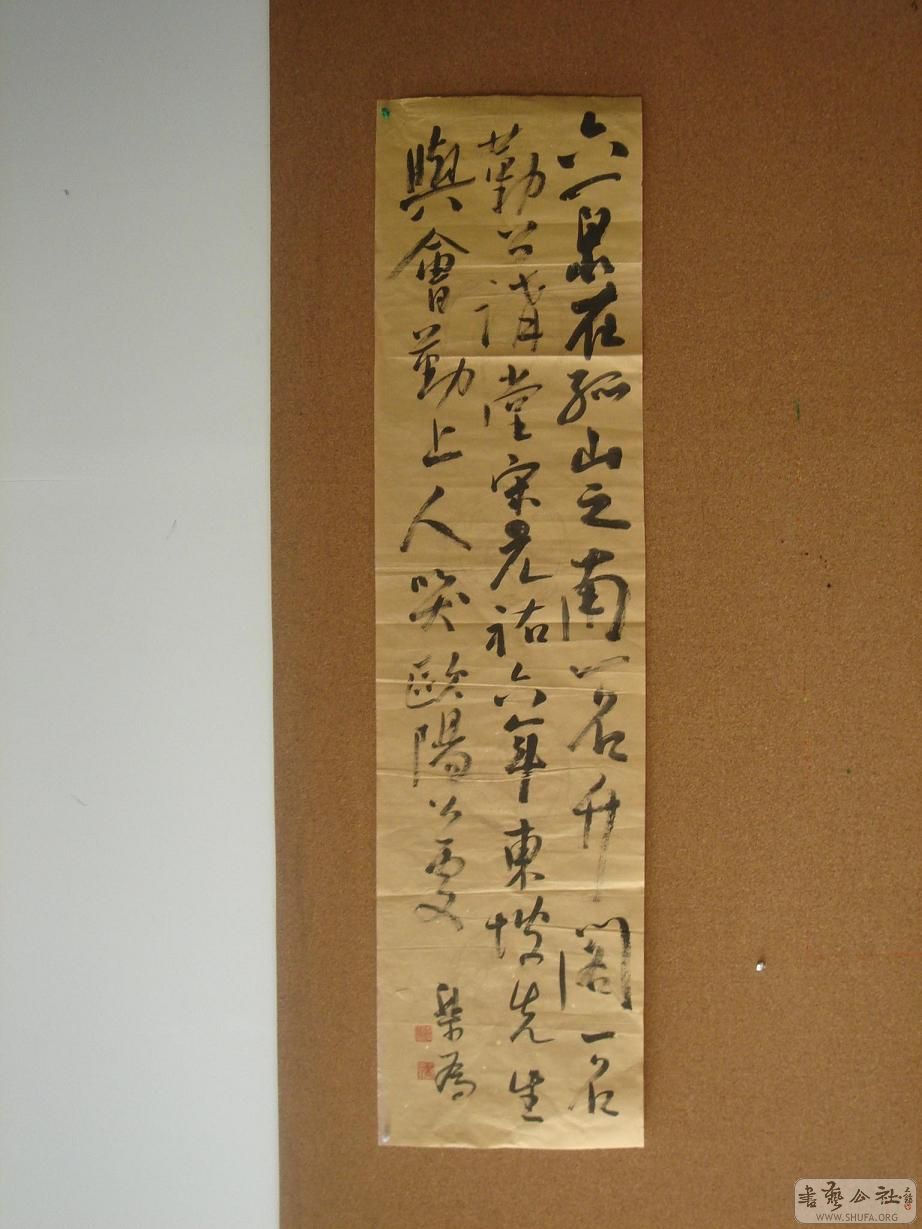 六一泉在孤山之南一名竹閣一名
勤公講堂宋元祐六年東坡先生
與會勤上人哭歐陽公處
書藝公社
WWW.SHUFA.ORG